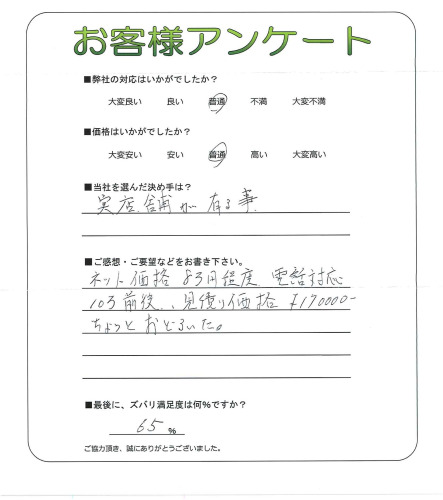 お客様アンケート
■弊社の対応はいかがでしたか？
大変良い 良い 普通 不満 大変不満
■価格はいかがでしたか？
大変安い 安い 普通 高い 大変高い
■当社を選んだ決め手は？
実店舗が有る事
■ご感想・ご要望などをお書き下さい。
ネット価格 8万円程度 電話対応
10万前後、見積り価格 ¥170000-
ちょっとおどろいた。
■最後に、ズバリ満足度は何％ですか？
65 %
ご協力頂き、誠にありがとうございました。